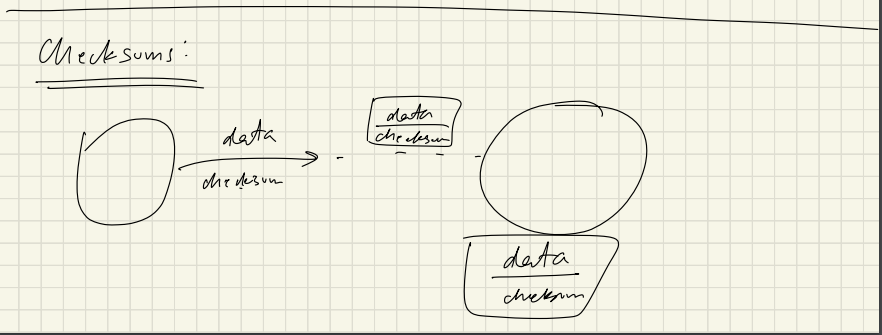 Checksums:
data
checksum
data
checksum
data
checksum